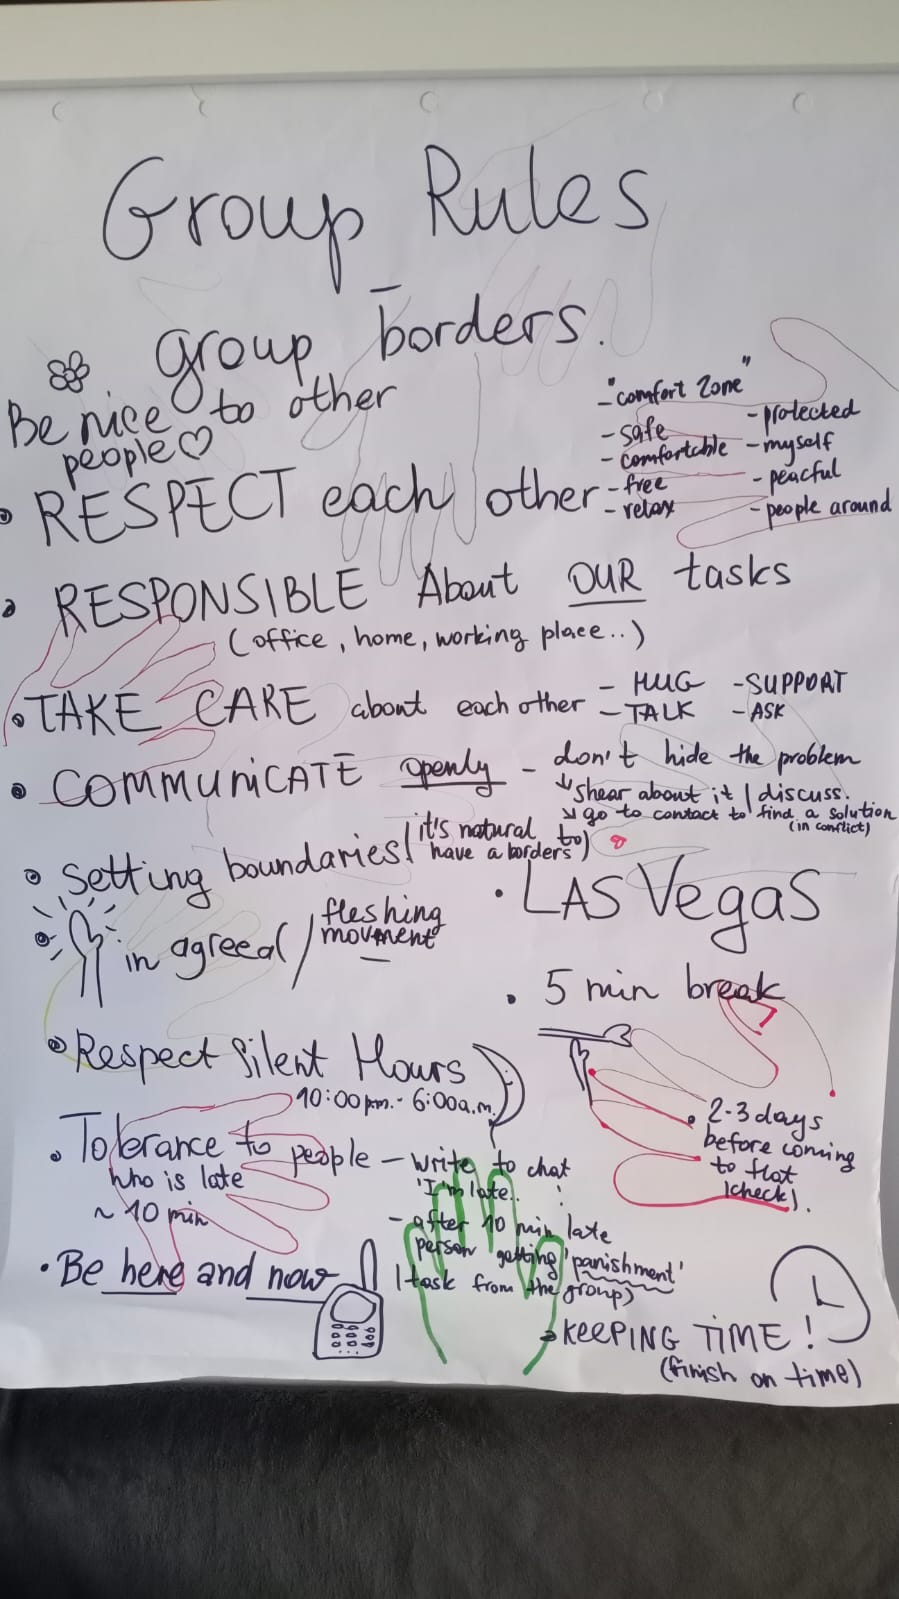 Group Rules
group borders.
Be nice to other
people
- "comfort zone"
- safe
- comfortable
- free
- relax
- protected
- myself
- peacful
- people around
• RESPECT each other
• RESPONSIBLE About OUR tasks
(office, home, working place..)
• TAKE CARE about each other
- HUG - SUPPORT
- TALK - ASK
• COMMUNICATE openly - don't hide the problem
↓ shear about it / discuss.
↘ go to contact to find a solution
(in conflict)
• Setting boundaries! (it's natural to
have a borders)
• in agreed / fleshing
movment
• Respect Silent Hours
10:00 p.m. - 6:00 a.m.
• Tolerance to people
who is late
~ 10 min
- write to chat
'I'm late..
- after 10 min late
person getting 'panishment'
(task from the group)
• Be here and now
• LAS VegaS
• 5 min break
• 2-3 days
before coming
to flat
(check).
KEEPING TIME!
(finish on time)